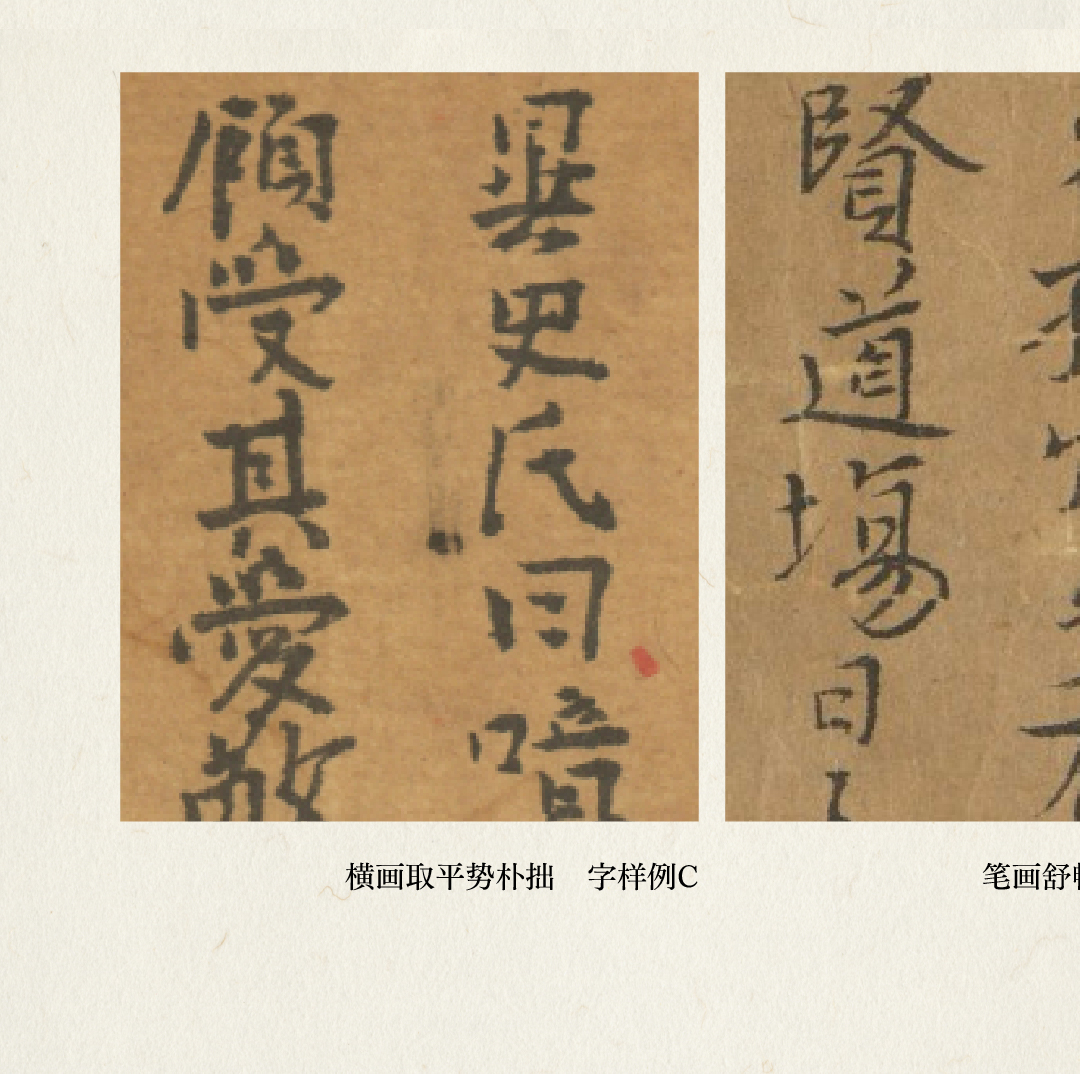 異史氏曰
顧受其愛敬
賢道場日
横画取平势朴拙　字样例C
笔画舒